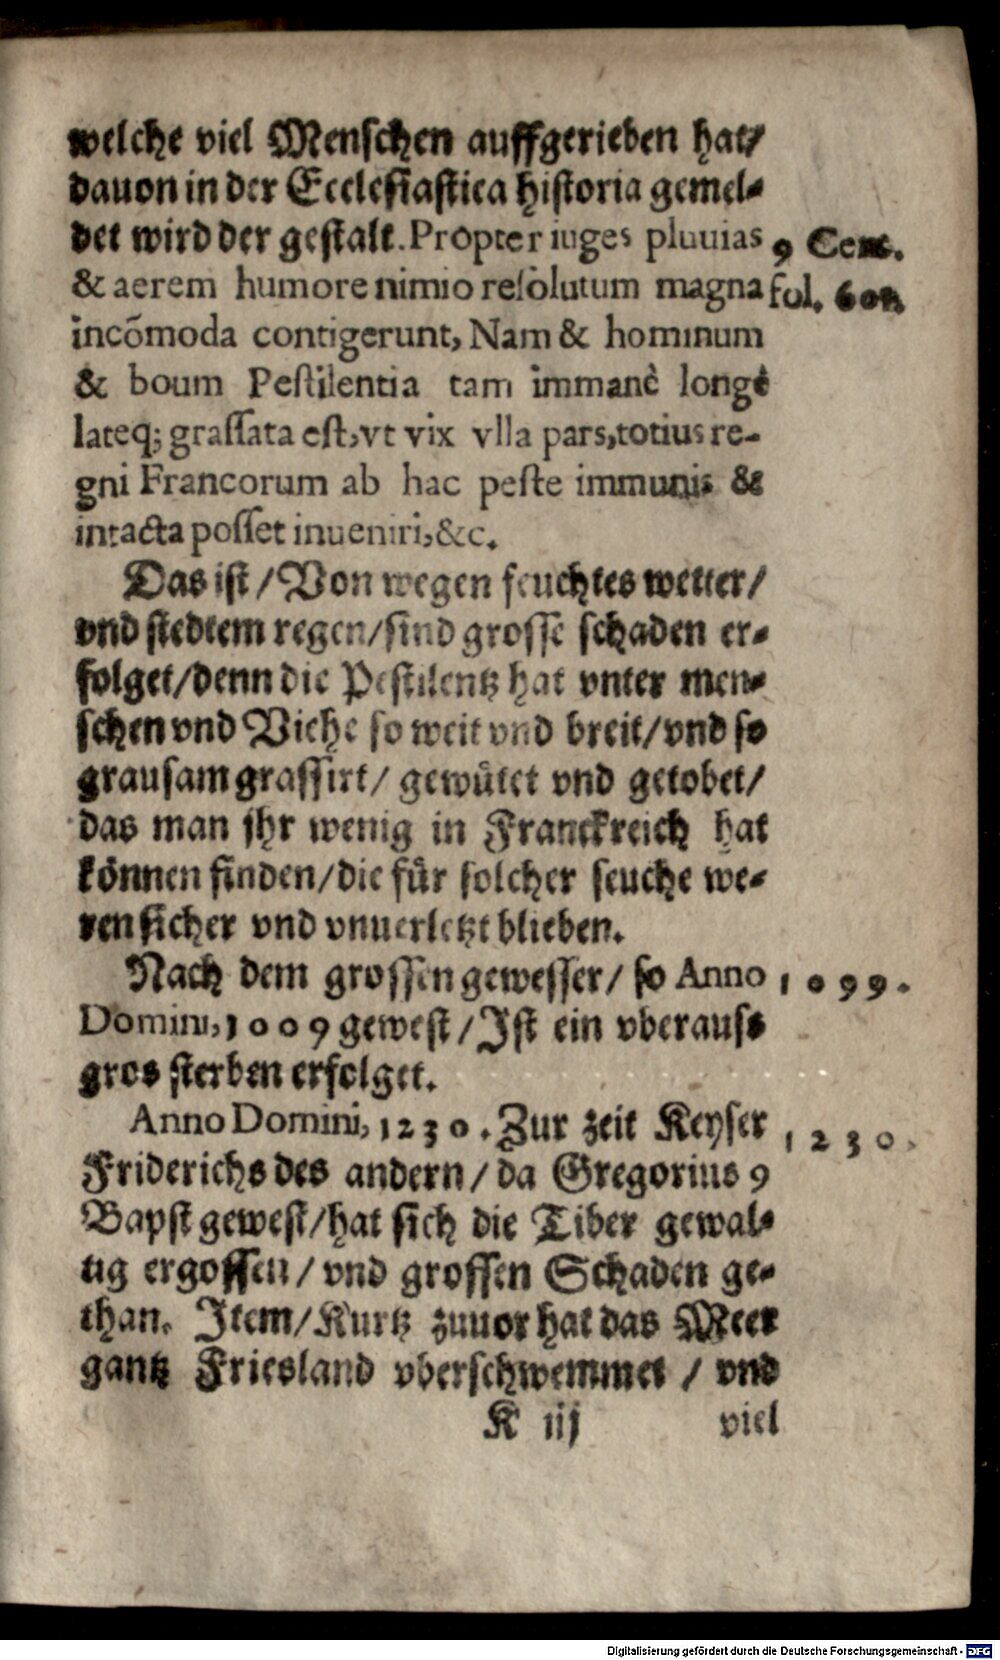 welche viel Menschen auffgerieben hat/
dauon in der Ecclesiastica historia gemel-
det wird der gestalt. Propter iuges pluuias
9 Cent.
& aerem humore nimio resolutum magna
fol. 
incõmoda contigerunt, Nam & hominum
& boum Pestilentia tam immanè longè
lateq; grassata est, vt vix vlla pars, totius re-
gni Francorum ab hac peste immunis &
intacta posset inueniri, &c.
Das ist / Von wegen feuchtes wetter /
vnd stedtem regen / sind grosse schaden er-
folget / denn die Pestilentz hat vnter men-
schen vnd Viehe so weit vnd breit / vnd so
grausam grassirt / gewütet vnd getobet /
das man jhr wenig in Franckreich hat
können finden / die für solcher seuche we-
ren sicher vnd vnuerletzt blieben.
Nach dem grossen gewesser / so Anno
1099.
Domini, 1009 gewest / Ist ein vberauss
gros sterben erfolget.
Anno Domini, 1230. Zur zeit Keyser
1230.
Friderichs des andern / da Gregorius 9
Bapst gewest / hat sich die Tiber gewal-
tig ergossen / vnd grossen Schaden ge-
than. Item / Kurtz zuuor hat das Meer
gantz Friesland vberschwemmet / vnd
K iij
viel
Digitalisierung gefördert durch die Deutsche Forschungsgemeinschaft - DFG